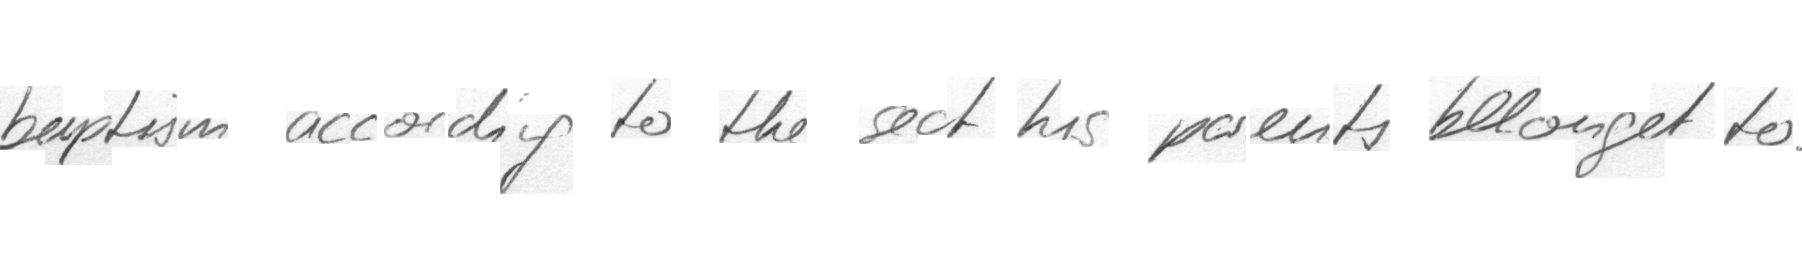 baptism according to the sect his parents belonged to.